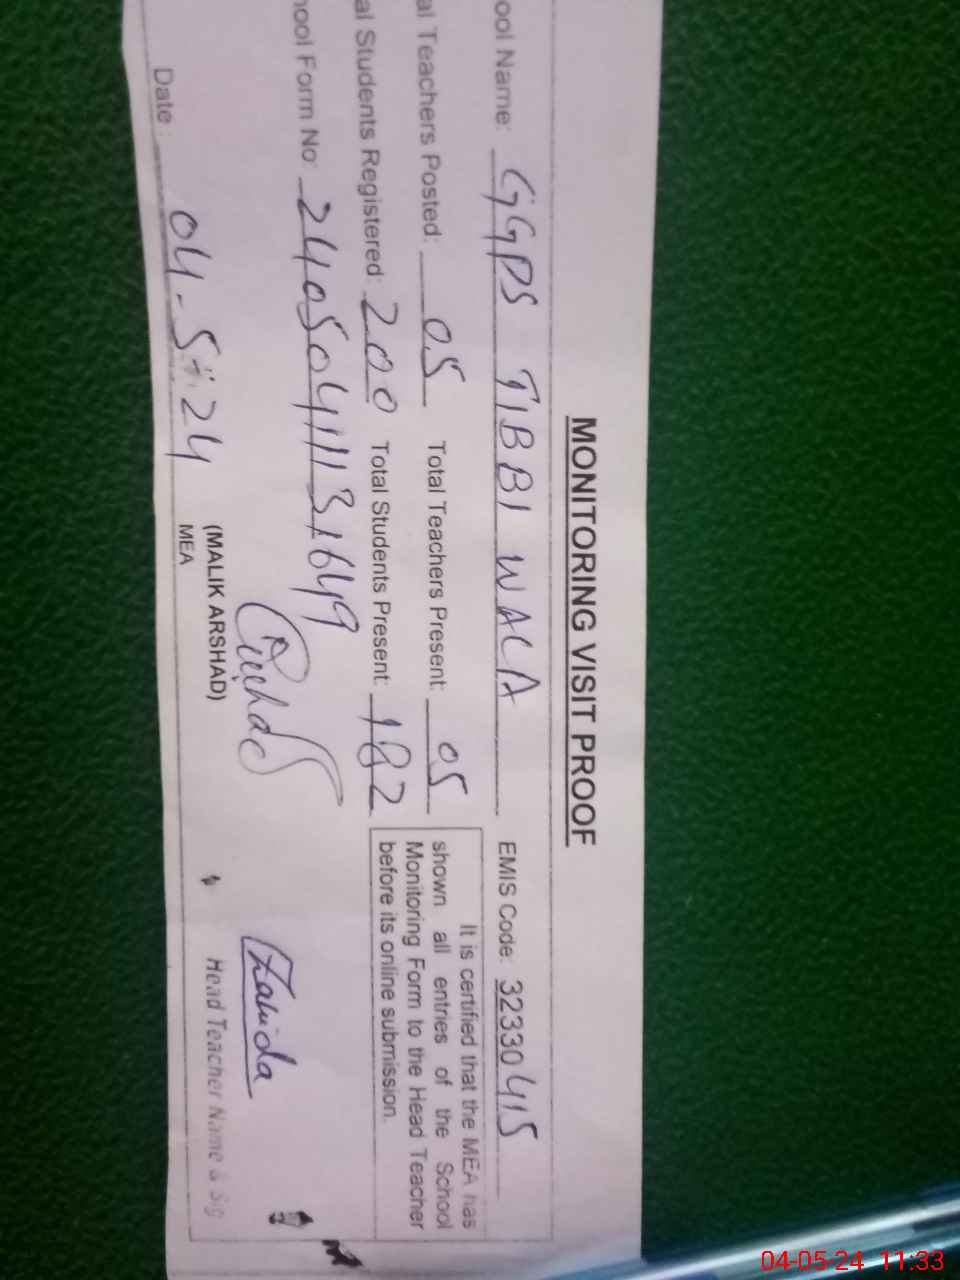 MONITORING VISIT PROOF
ool Name: GGPS TIBBI WALA EMIS Code: 32330415
al Teachers Posted: 05 Total Teachers Present: 05
al Students Registered: 200 Total Students Present: 182
It is certified that the MEA has
shown all entries of the School
Monitoring Form to the Head Teacher
before its online submission.
hool Form No: 24050411131649
Zahida
Date: 04-5-24
(MALIK ARSHAD)
MEA
Head Teacher Name & Sig
04-05-24 11:33